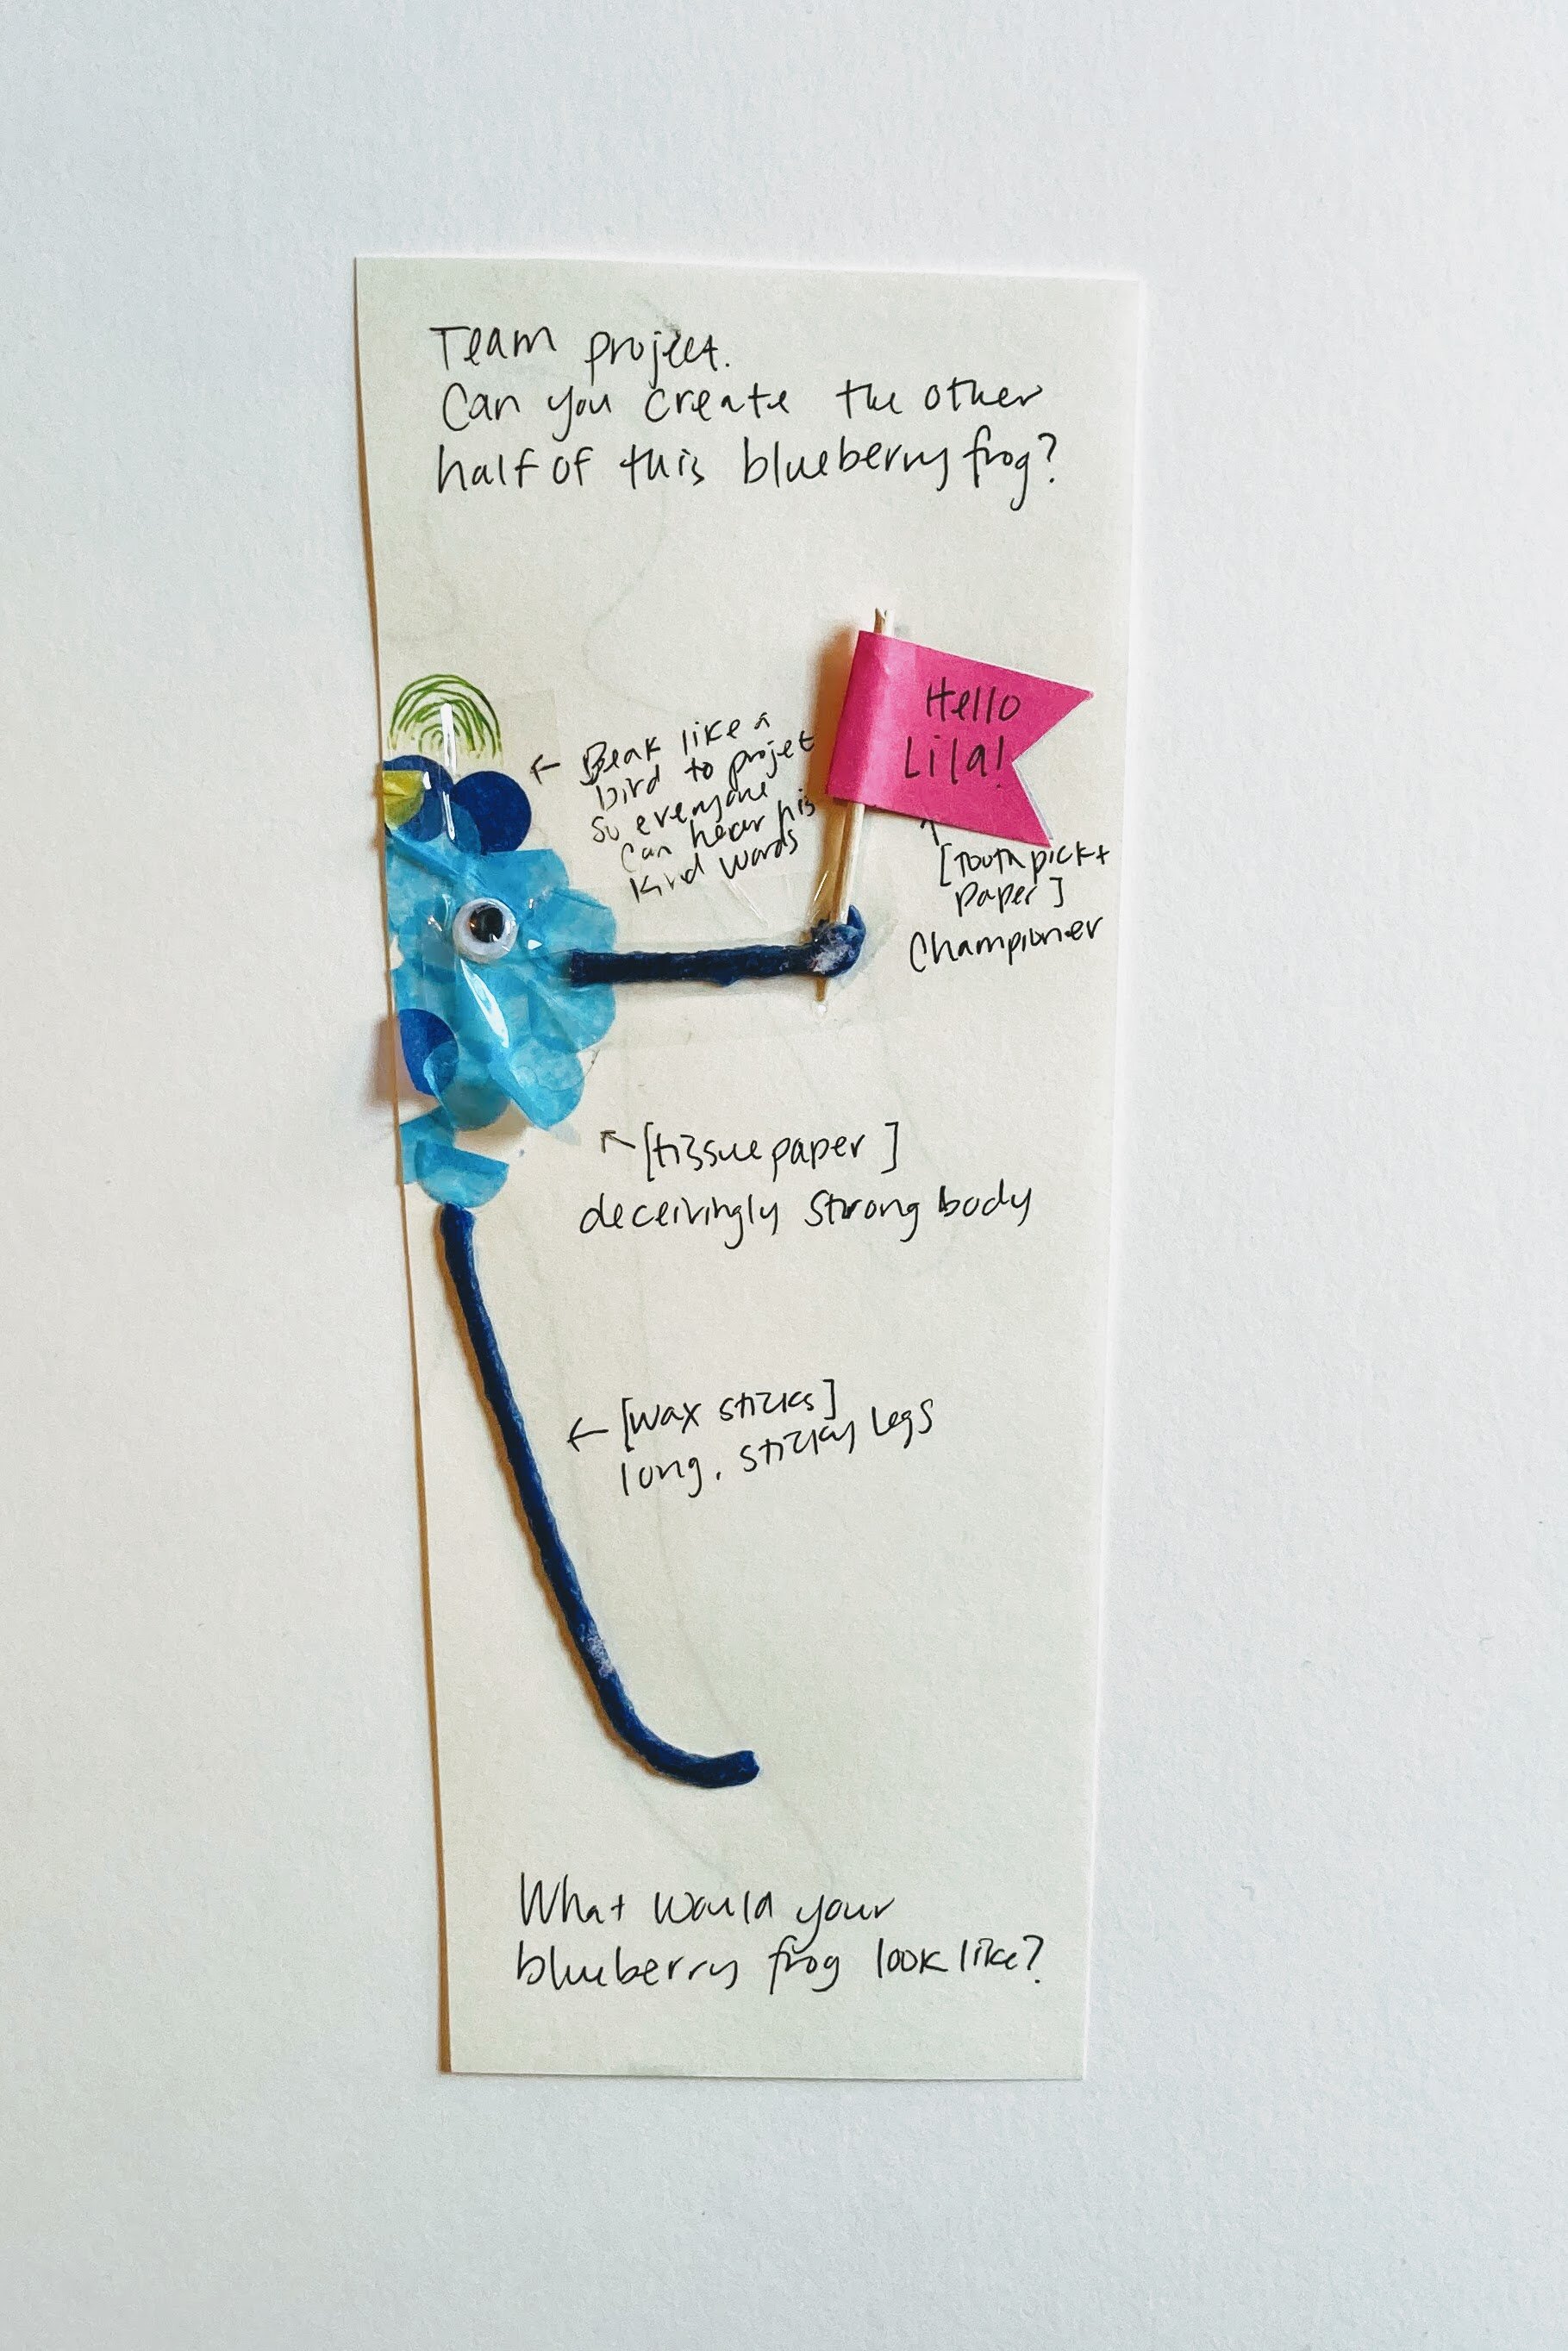 Team project.
Can you create the other
half of this blueberry frog?
Hello
Lila!
← Beak like a
bird to projet
so everyone
can hear his
kind words
↑
[toothpick +
paper]
Championer
↖ [tissue paper]
deceivingly strong body
← [wax sticks]
long, sticky legs
What would your
blueberry frog look like?